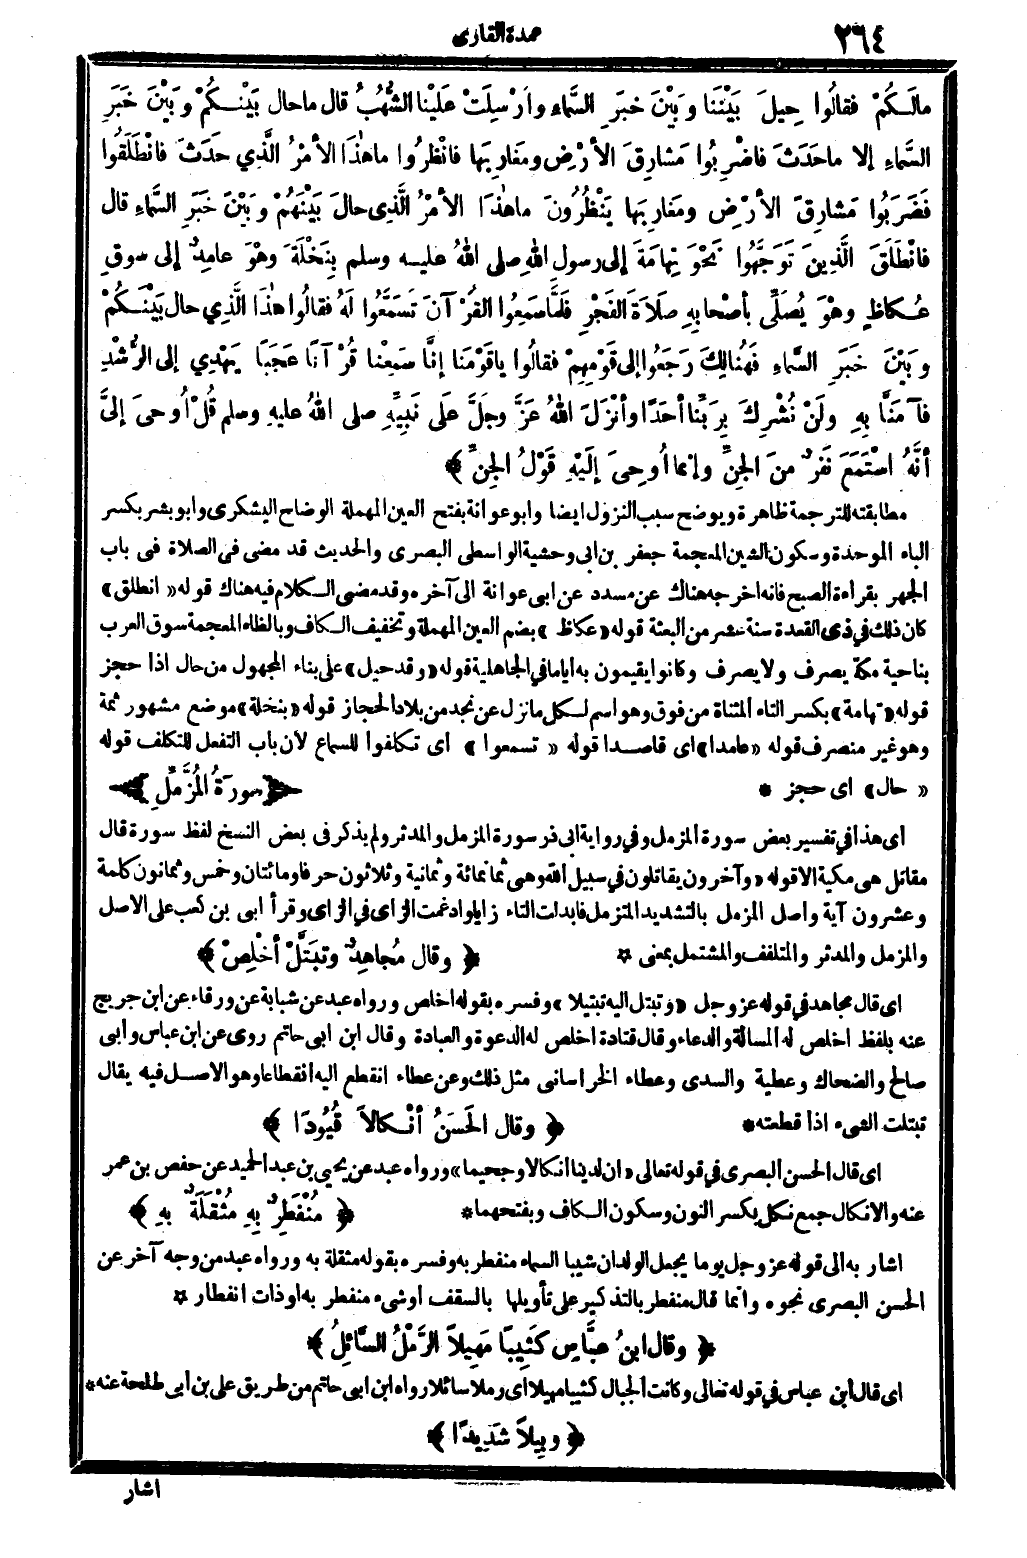 ٢٦٤
عمدة القارى
مالَكُمْ فقالُوا حِيلَ بَيْنَنا وبَيْنَ خبَرِ السَّماءِ وأُرْسِلَتْ عَلَيْنا الشُّهُبُ قال ماحال بَيْنَكُمْ وبَيْنَ خَبَرِ
السَّماءِ إلا ماحَدَثَ فاضْرِبُوا مَشارِقَ الأرْضِ ومَغارِبَها فانْظرُوا ماهٰذا الأمْرُ الَّذِي حَدَثَ فانْطَلَقُوا
فَضَرَبُوا مَشارِقَ الأرْضِ ومَغارِبَها يَنْظُرُونَ ماهٰذا الأمْرُ الَّذِى حالَ بَيْنَهُمْ وبَيْنَ خَبَرِ السَّماءِ قال
فانْطَلَقَ الَّذِينَ تَوَجَّهُوا نَحْوَ تِهامَةَ إلى رسول اللهِ صلى اللهُ عليه وسلم بِنَخْلَةَ وهْوَ عامِدٌ إلى سوقِ
عُكاظٍ وهْوَ يُصَلِّى بأصْحابِهِ صلَاةَ الفَجْرِ فَلَمَّا سَمِعُوا القُرْآنَ تَسَمَّعُوا لَهُ فقالُوا هٰذَا الَّذِي حال بَيْنَكُمْ
وبَيْنَ خبَرِ السَّماءِ فَهُنالِكَ رَجَعُوا إلى قَوْمِهِمْ فقالُوا ياقَوْمَنا إنَّا سَمِعْنا قُرْآنًا عَجَبًا يَهْدِي إلى الرُّشْدِ
فآمَنَّا بِهِ ولَنْ نُشْرِكَ بِرَبِّنا أحَدًا وأنْزَلَ اللهُ عَزَّ وجَلَّ عَلَى نَبِيِّهِ صلى اللهُ عليهِ وسلم قُلْ أُوحِىَ إلىَّ
أنَّهُ اسْتَمَعَ نَفَرٌ منَ الجِنِّ وإنما أُوحِىَ إلَيْهِ قَوْلُ الجِنِّ ﴾
مطابقته للترجمة ظاهرة ويوضح سبب النزول ايضا وابو عوانة بفتح العين المهملة الوضاح اليشكرى وابو بشر بكسر
الباء الموحدة وسكون الشين المعجمة جعفر بن ابى وحشية الواسطى البصرى والحديث قد مضى فى الصلاة فى باب
الجهر بقراءة الصبح فانه اخرجه هناك عن مسدد عن ابى عوانة الى آخره وقد مضى الكلام فيه هناك قوله «انطلق»
كان ذلك في ذى القعدة سنة عشر من البعثة قوله «عكاظ» بضم العين المهملة وتخفيف الكاف وبالظاء المعجمة سوق العرب
بناحية مكة يصرف ولا يصرف وكانوا يقيمون به أياما في الجاهلية قوله «وقد حيل» على بناء المجهول من حال اذا حجز
قوله «تهامة» بكسر التاء المثناة من فوق وهو اسم لكل ما نزل عن نجد من بلاد الحجاز قوله «بنخلة» موضع مشهور ثمة
وهو غير منصرف قوله «عامدا» اى قاصدا قوله «تسمعوا» اى تكلفوا للسماع لان باب التفعل للتكلف قوله
«حال» اى حجز *
﴿سورَةُ المُزَّمِّلِ﴾
اى هذا في تفسير بعض سورة المزمل وفي رواية ابى ذر سورة المزمل والمدثر ولم يذكر فى بعض النسخ لفظ سورة قال
مقاتل هى مكية الا قوله «وآخرون يقاتلون في سبيل الله» وهى ثمانمائة وثمانية وثلاثون حرفا ومائتان وخمس وثمانون كلمة
وعشرون آية واصل المزمل بالتشديد المتزمل فابدلت التاء زايا وادغمت الزاى في الزاى وقرأ ابى بن كعب على الاصل
والمزمل والمدثر والمتلفف والمشتمل بمعنى *
﴿ وقال مُجاهِدٌ وتَبَتَّلْ أخْلِصْ ﴾
اى قال مجاهد في قوله عز وجل «وتبتل اليه تبتيلا» وفسره بقوله اخلص ورواه عبد عن شبابة عن ورقاء عن ابن جريج
عنه بلفظ اخلص له المسألة والدعاء وقال قتادة اخلص له الدعوة والعبادة وقال ابن ابى حاتم روى عن ابن عباس وأبى
صالح والضحاك وعطية والسدى وعطاء الخراسانى مثل ذلك وعن عطاء انقطع اليه انقطاعا وهو الاصل فيه يقال
تبتلت الشىء اذا قطعته *
﴿ وقال الحَسَنُ أنْكالاً قُيُودًا ﴾
اى قال الحسن البصرى في قوله تعالى «ان لدينا انكالا وجحيما» ورواه عبد عن يحيى بن عبد الحميد عن حفص بن عمر
عنه والانكال جمع نكل بكسر النون وسكون الكاف وبفتحهما *
﴿ مُنْفَطِرٌ بِهِ مُثْقَلَةٌ بِهِ ﴾
اشار به الى قوله عز وجل يوما يجعل الولدان شيبا السماء منفطر به وفسره بقوله مثقلة به ورواه عبد من وجه آخر عن
الحسن البصرى نحوه وانما قال منفطر بالتذكير على تأويلها بالسقف او شىء منفطر به او ذات انفطار *
﴿ وقال ابنُ عبَّاسٍ كَثِيبًا مَهِيلاً الرَّمْلُ السَّائِلُ ﴾
اى قال ابن عباس في قوله تعالى وكانت الجبال كثيبا مهيلا اى رملا سائلا رواه ابن ابى حاتم من طريق على بن أبى طلحة عنه *
﴿ وبِيلاً شَدِيدًا ﴾
اشار